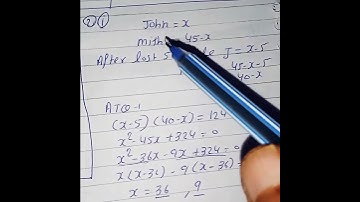 2) 1)
John = x
Mish 45-x
After lost 5 J = x-5
45-x-5
40-x
ATQ-1
(x-5)(40-x) = 124
x²-45x+324=0
x²-36x-9x+324=0
x(x-36)-9(x-36)=
x = 36, 9